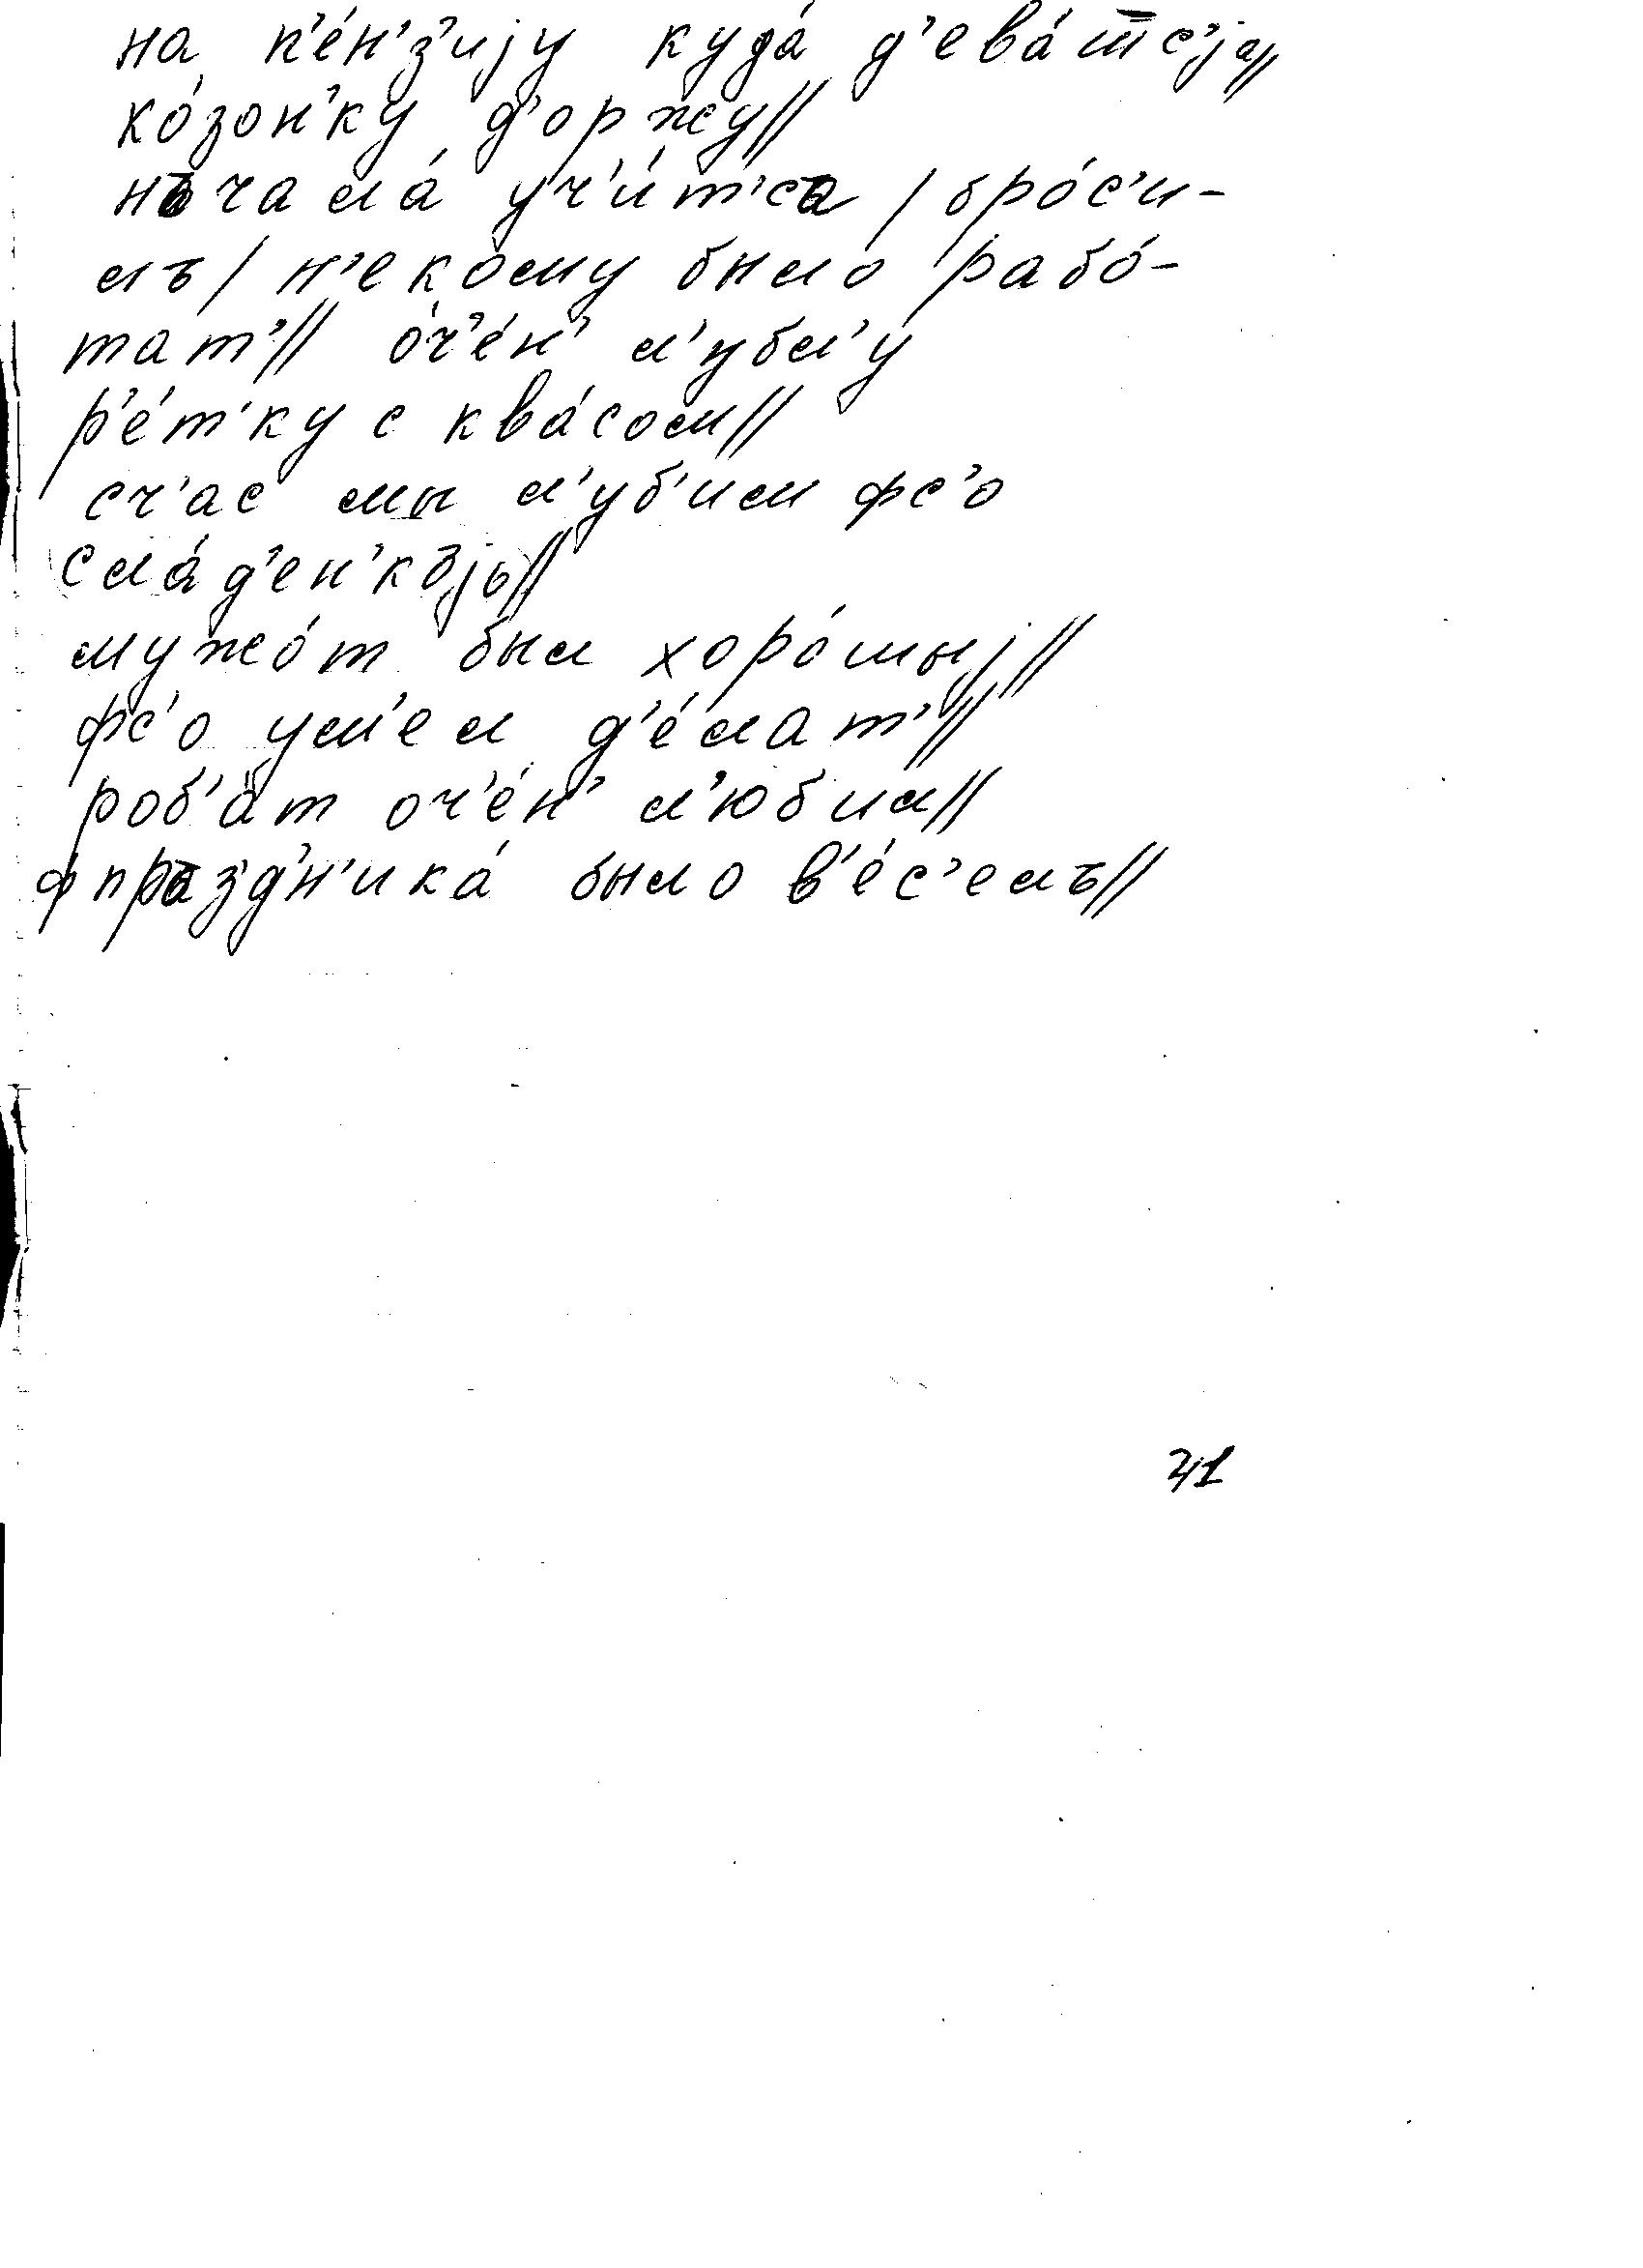 на п'е́н'з'иjу куда́ д'ева́т̅с'jа//
хо́зон'ку д'оржу//
нъчала́ уч'и́т'са / бро́с'и-
лъ / н'екому было рабо́-
тат'// о́ч'е́н' л'убл'у́
р'е́т'ку с ква́сом//
сч'ас мы л'уб'им фс'о
сла́д'ен'къjь//
мужо́т был хоро́шыj//
фс'о ум'ел д'е́лат'//
роб'а́т оч'е́н' л'юбил//
фпразд'н'ика́ было в'е́с'елъ//